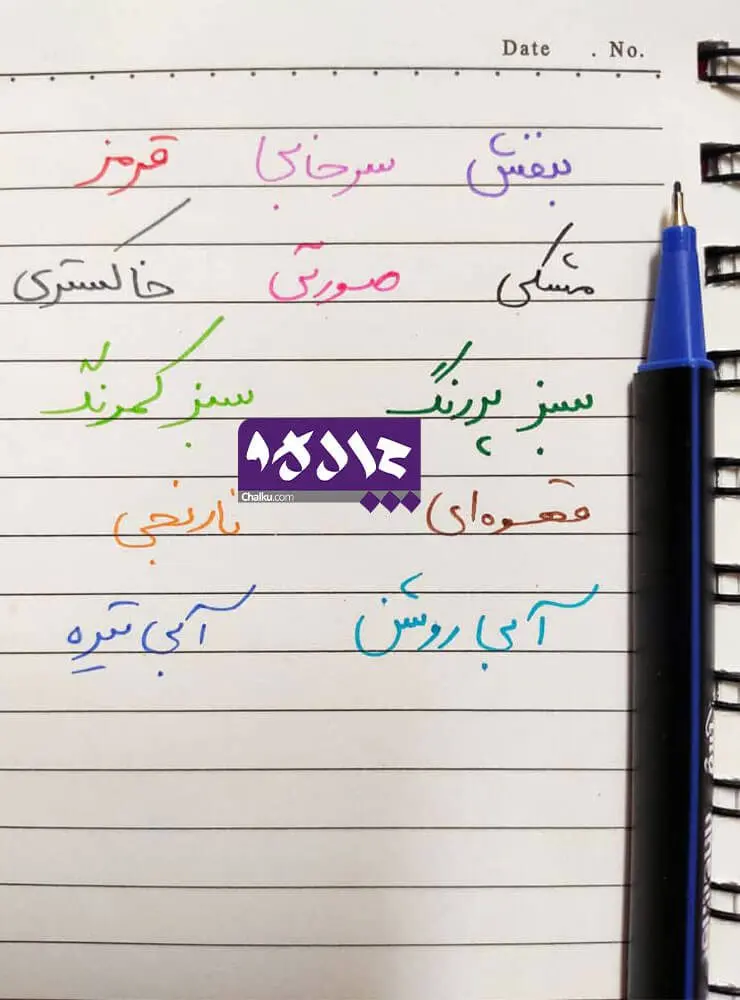 Date . No.
بنفش سرخابی قرمز
مشکی صورتی خاکستری
سبز پررنگ سبز کمرنگ
چالکو
Chalku.com
قهوه‌ای نارنجی
آبی روشن آبی تیره